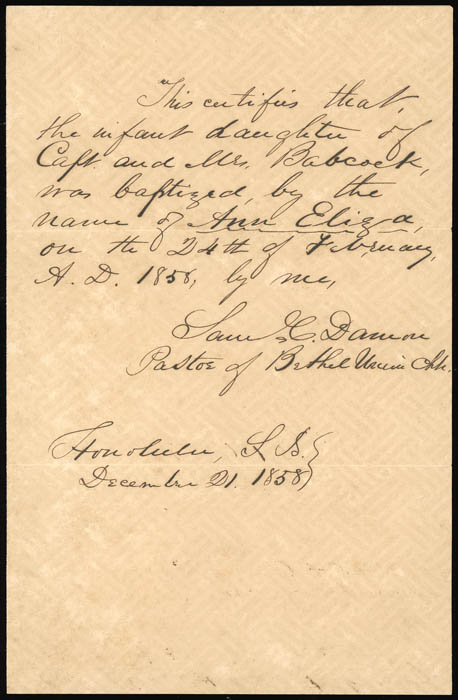 This certifies that,
the infant daughter of
Capt. and Mrs. Babcock,
was baptized, by the
name of Ann Eliza,
on the 24th of February,
A. D. 1858, by me,
Sam C. Damon
Pastor of Bethel Union Chh.
Honolulu, S. I.
December 21. 1858